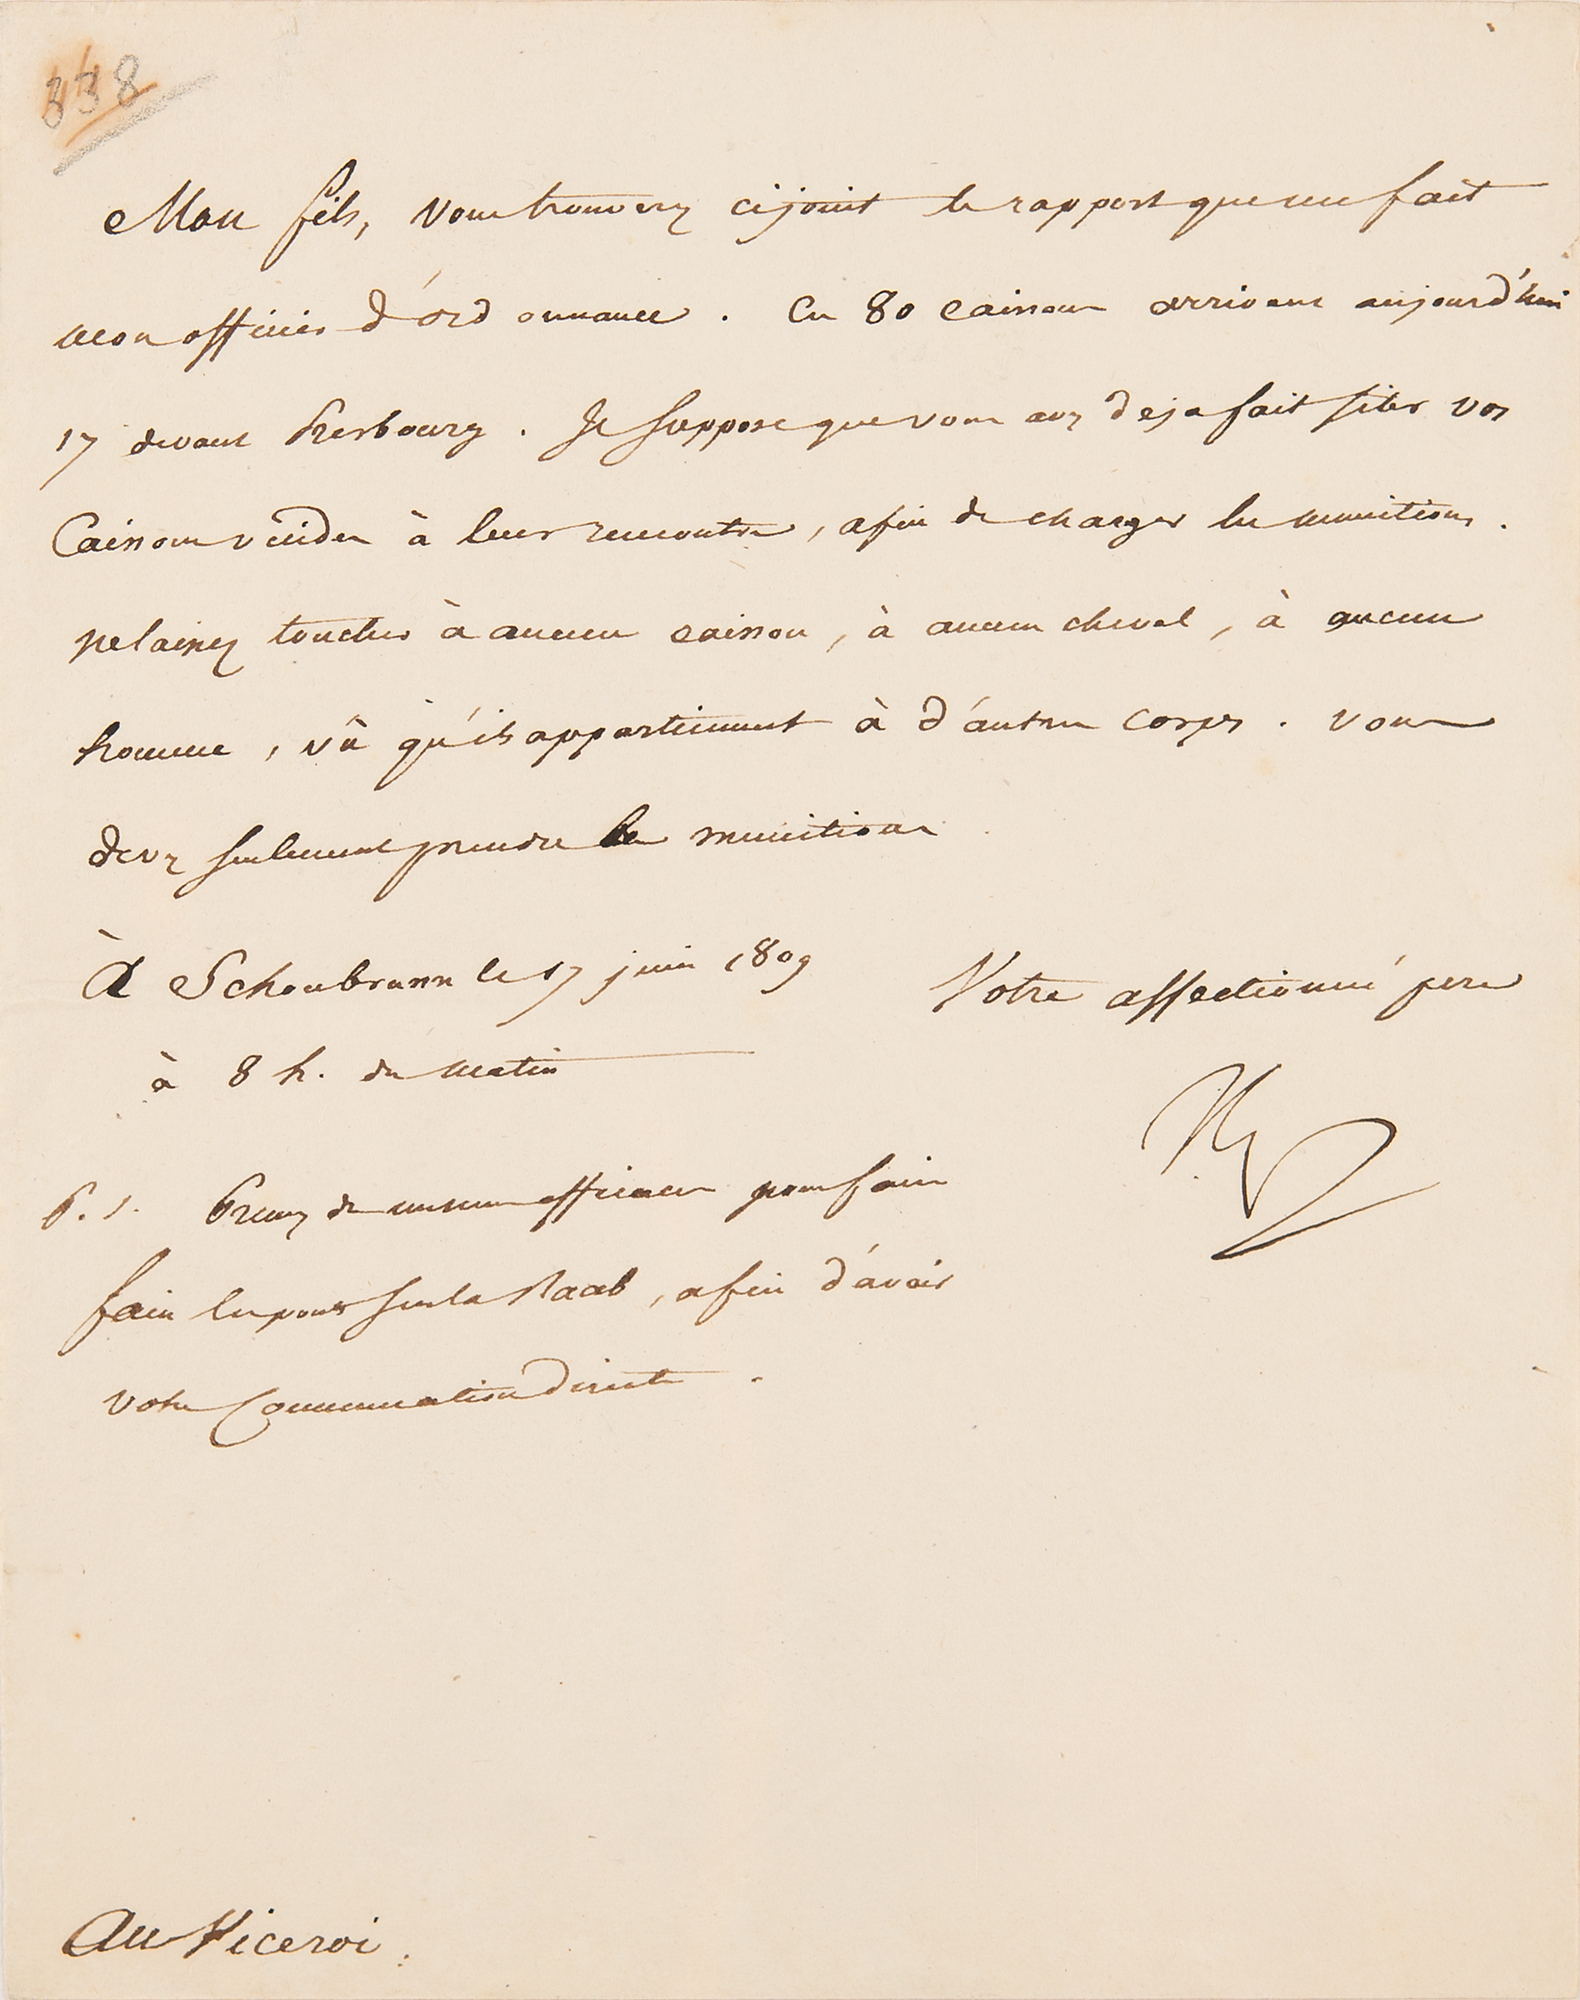 338
Mon fils, Vous trouverez cijoint le rapport que me fait
mon officier d'ordonnance. Ces 80 Caissons arrivent aujourd'hui
17 devant Presbourg. Je suppose que vous avez deja fait filer vos
Caissons vuides à leur rencontre, afin de charger les munitions.
Ne laissez toucher à aucun caisson, à aucun cheval, à aucun
homme, vû qu'ils appartiennent à d'autres corps. Vous
devez seulement prendre les munitions
À Schonbrunn le 17 juin 1809
Votre affectionné pere
à 8 h. du matin
P. S. Prenez des mesures efficaces pour faire
faire les ponts sur la Raab, afin d'avoir
votre Communication directe.
Au Viceroi.